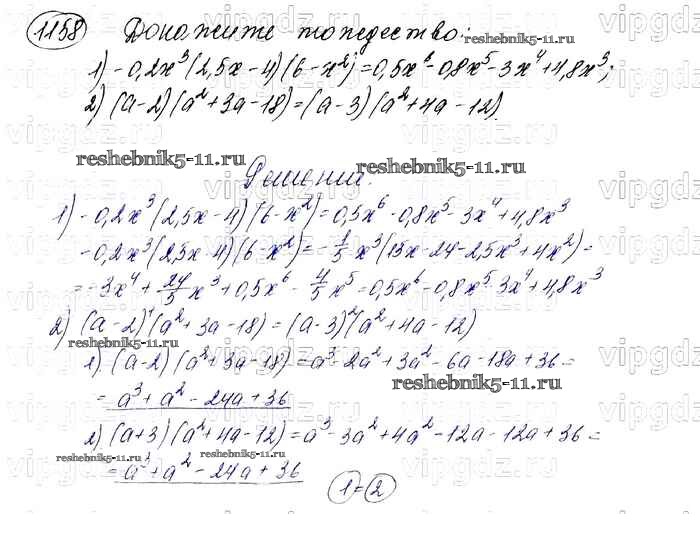 1158 Докажите тождество:
1) -0,2x³(2,5x-4)(6-x²)=0,5x⁶-0,8x⁵-3x⁴+4,8x³;
2) (a-2)(a²+3a-18)=(a-3)(a²+4a-12).
reshebnik5-11.ru
reshebnik5-11.ru
Решение.
1) -0,2x³(2,5x-4)(6-x²)=0,5x⁶-0,8x⁵-3x⁴+4,8x³
-0,2x³(2,5x-4)(6-x²)=-1/5x³(15x-24-2,5x³+4x²)=
=-3x⁴+24/5x³+0,5x⁶-4/5x⁵=0,5x⁶-0,8x⁵-3x⁴+4,8x³
2) (a-2)¹(a²+3a-18)=(a-3)²(a²+4a-12)
reshebnik5-11.ru
1) (a-2)(a²+3a-18)=a³-2a²+3a²-6a-18a+36=
reshebnik5-11.ru
=a³+a²-24a+36
2) (a+3)(a²+4a-12)=a³-3a²+4a²-12a-12a+36=
reshebnik5-11.ru
reshebnik5-11.ru
=a³+a²-24a+36
1=2
vipgdz.ru